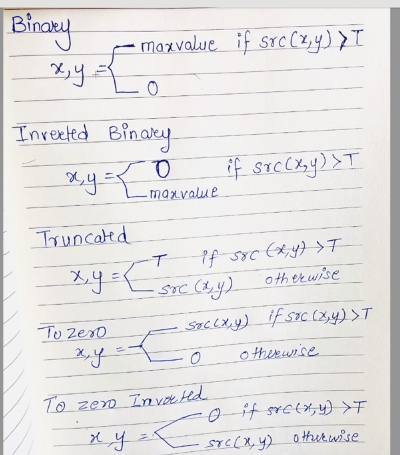 Binary
x,y = maxvalue if src(x,y) > T
0
Inverted Binary
x,y = 0 if src(x,y) > T
maxvalue
Truncated
x,y = T if src (x,y) > T
src (x,y) otherwise
To zero
x,y = src(x,y) if src (x,y) > T
0 otherwise
To zero Inverted
x,y = 0 if src(x,y) > T
src(x,y) otherwise